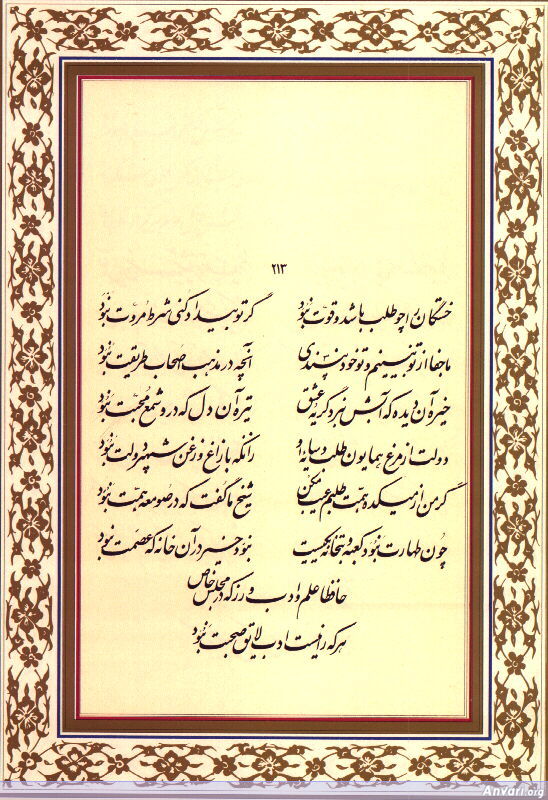 ۲۱۳
خستگان را چو طلب باشد و قوت نبود گر تو بیداد کنی شرط مروت نبود
ما جفا از تو نبینیم و تو خود نپسندی آنچه در مذهب اصحاب طریقت نبود
خیره آن دیده که آبش نبرد گریه عشق تیره آن دل که درو شمع محبت نبود
دولت از مرغ همایون طلب و سایه او زانکه با زاغ و زغن شهپر دولت نبود
گر من از میکده همت طلبم عیب مکن شیخ ما گفت که در صومعه همت نبود
چون طهارت نبود کعبه و بتخانه یکیست نبود خیر در آن خانه که عصمت نبود
حافظا علم و ادب ورز که در مجلس خاص
هر که را نیست ادب لایق صحبت نبود
Anvari.org